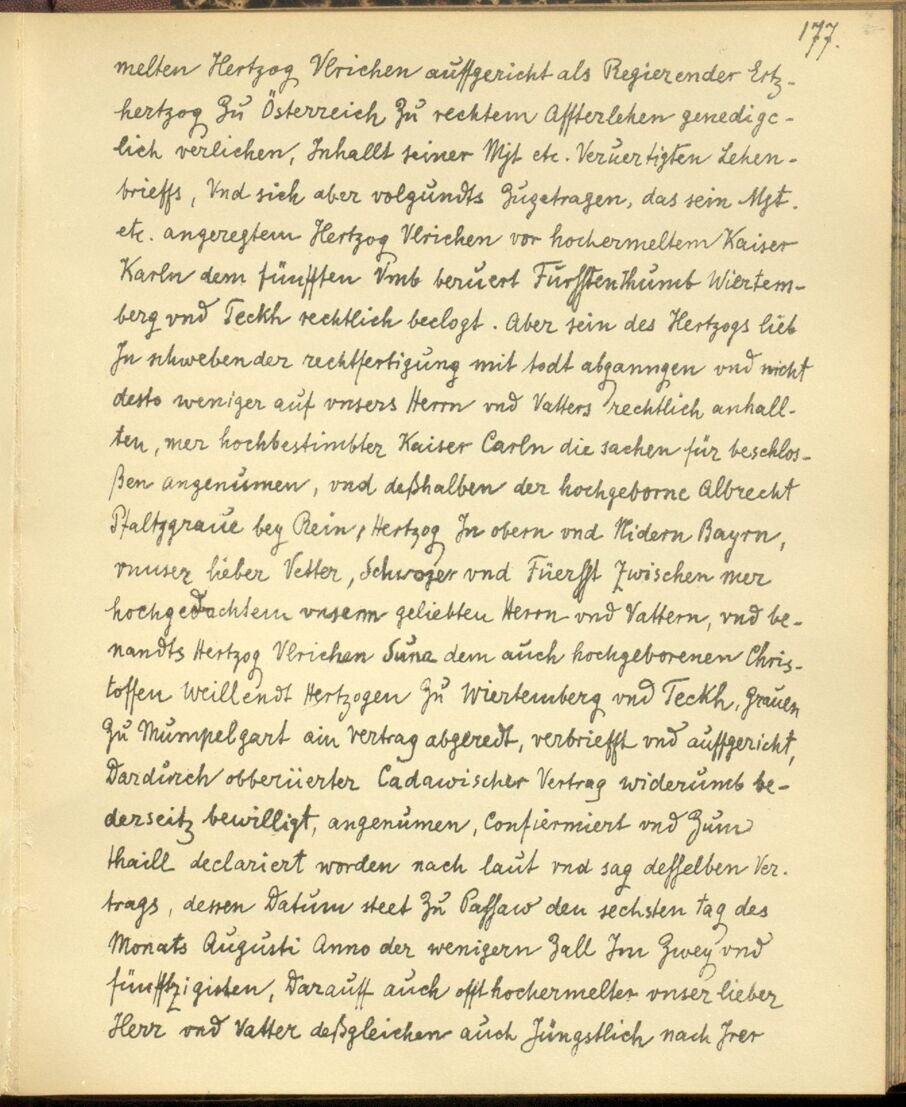 177.
melten Hertzog Vlrichen auffgericht als Regierender Ertz-
hertzog Zu Österreich Zu rechtem Affterlehen genedigc-
lich verlichen, Inhallt seiner Mjt etc. Veruertigten Lehen-
brieffs, Vnd sich aber volgundts Zugetragen, das sein Mjt.
etc. angeregtem Hertzog Vlrichen vor hochermeltem Kaiser
Karln dem fünfften Vmb beruert Fürstenthumb Wiertem-
berg vnd Teckh rechtlich beclogt. Aber sein des Hertzogs lieb
In schwebender rechtfertigung mit todt abganngen vnd nicht
desto weniger auf vnsers Herrn vnd Vatters rechtlich anhall-
ten, mer hochbestimbter Kaiser Carln die sachen für beschlos-
ßen angenumen, vnd deßhalben der hochgeborne Albrecht
Pfaltzgraue bey Rein, Hertzog In obern vnd Nidern Bayrn,
vnnser lieber Vetter, Schwager vnd Füerst Zwischen mer
hochgedachtem vnserm geliebten Herrn vnd Vattern, vnd be-
nandts Hertzog Vlrichen Suna dem auch hochgeborenen Chris-
toffen Weillendt Hertzogen Zu Wiertemberg vnd Teckh, Grauen
Zu Mumpelgart ain Vertrag abgeredt, verbriefft vnd auffgericht,
Dardurch obberüerter Cadawischer Vertrag widerumb be-
derseitz bewilligt, angenumen, Confiermiert vnd Zum
thaill declariert worden nach laut vnd sag desselben Ver-
trags, dessen Datum steet Zu Passaw den sechsten tag des
Monats Augusti Anno der wenigern Zall Im Zwey vnd
fünfftzigisten, Darauff auch offt hochermelter vnser lieber
Herr vnd Vatter deßgleichen auch Jüngstlich nach Irer